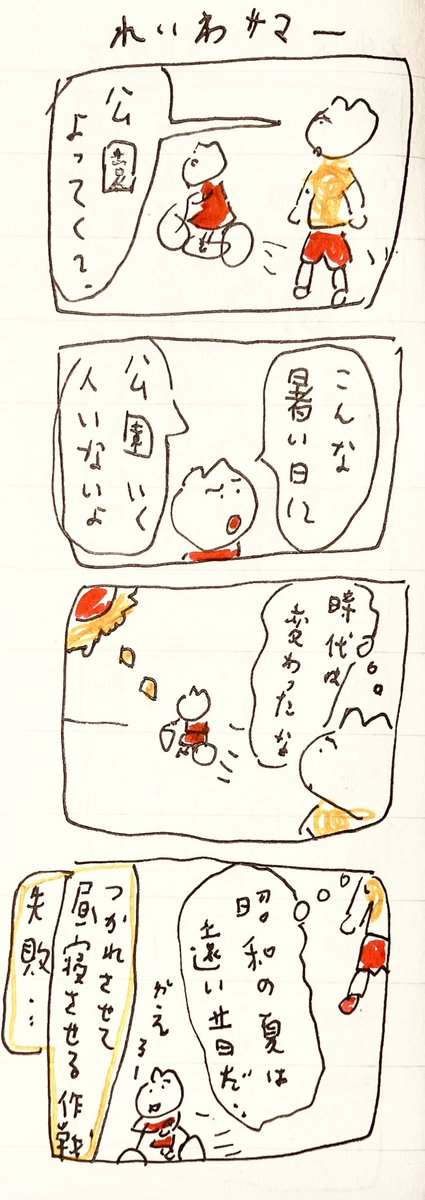 れいわサマー
公園
よってく?
こんな
暑い日に
公園いく
人いないよ
時代は
変わったかな
昭和の夏は
遠い昔だ…
がえろー
つかれさせて
昼寝させる作戦
失敗…